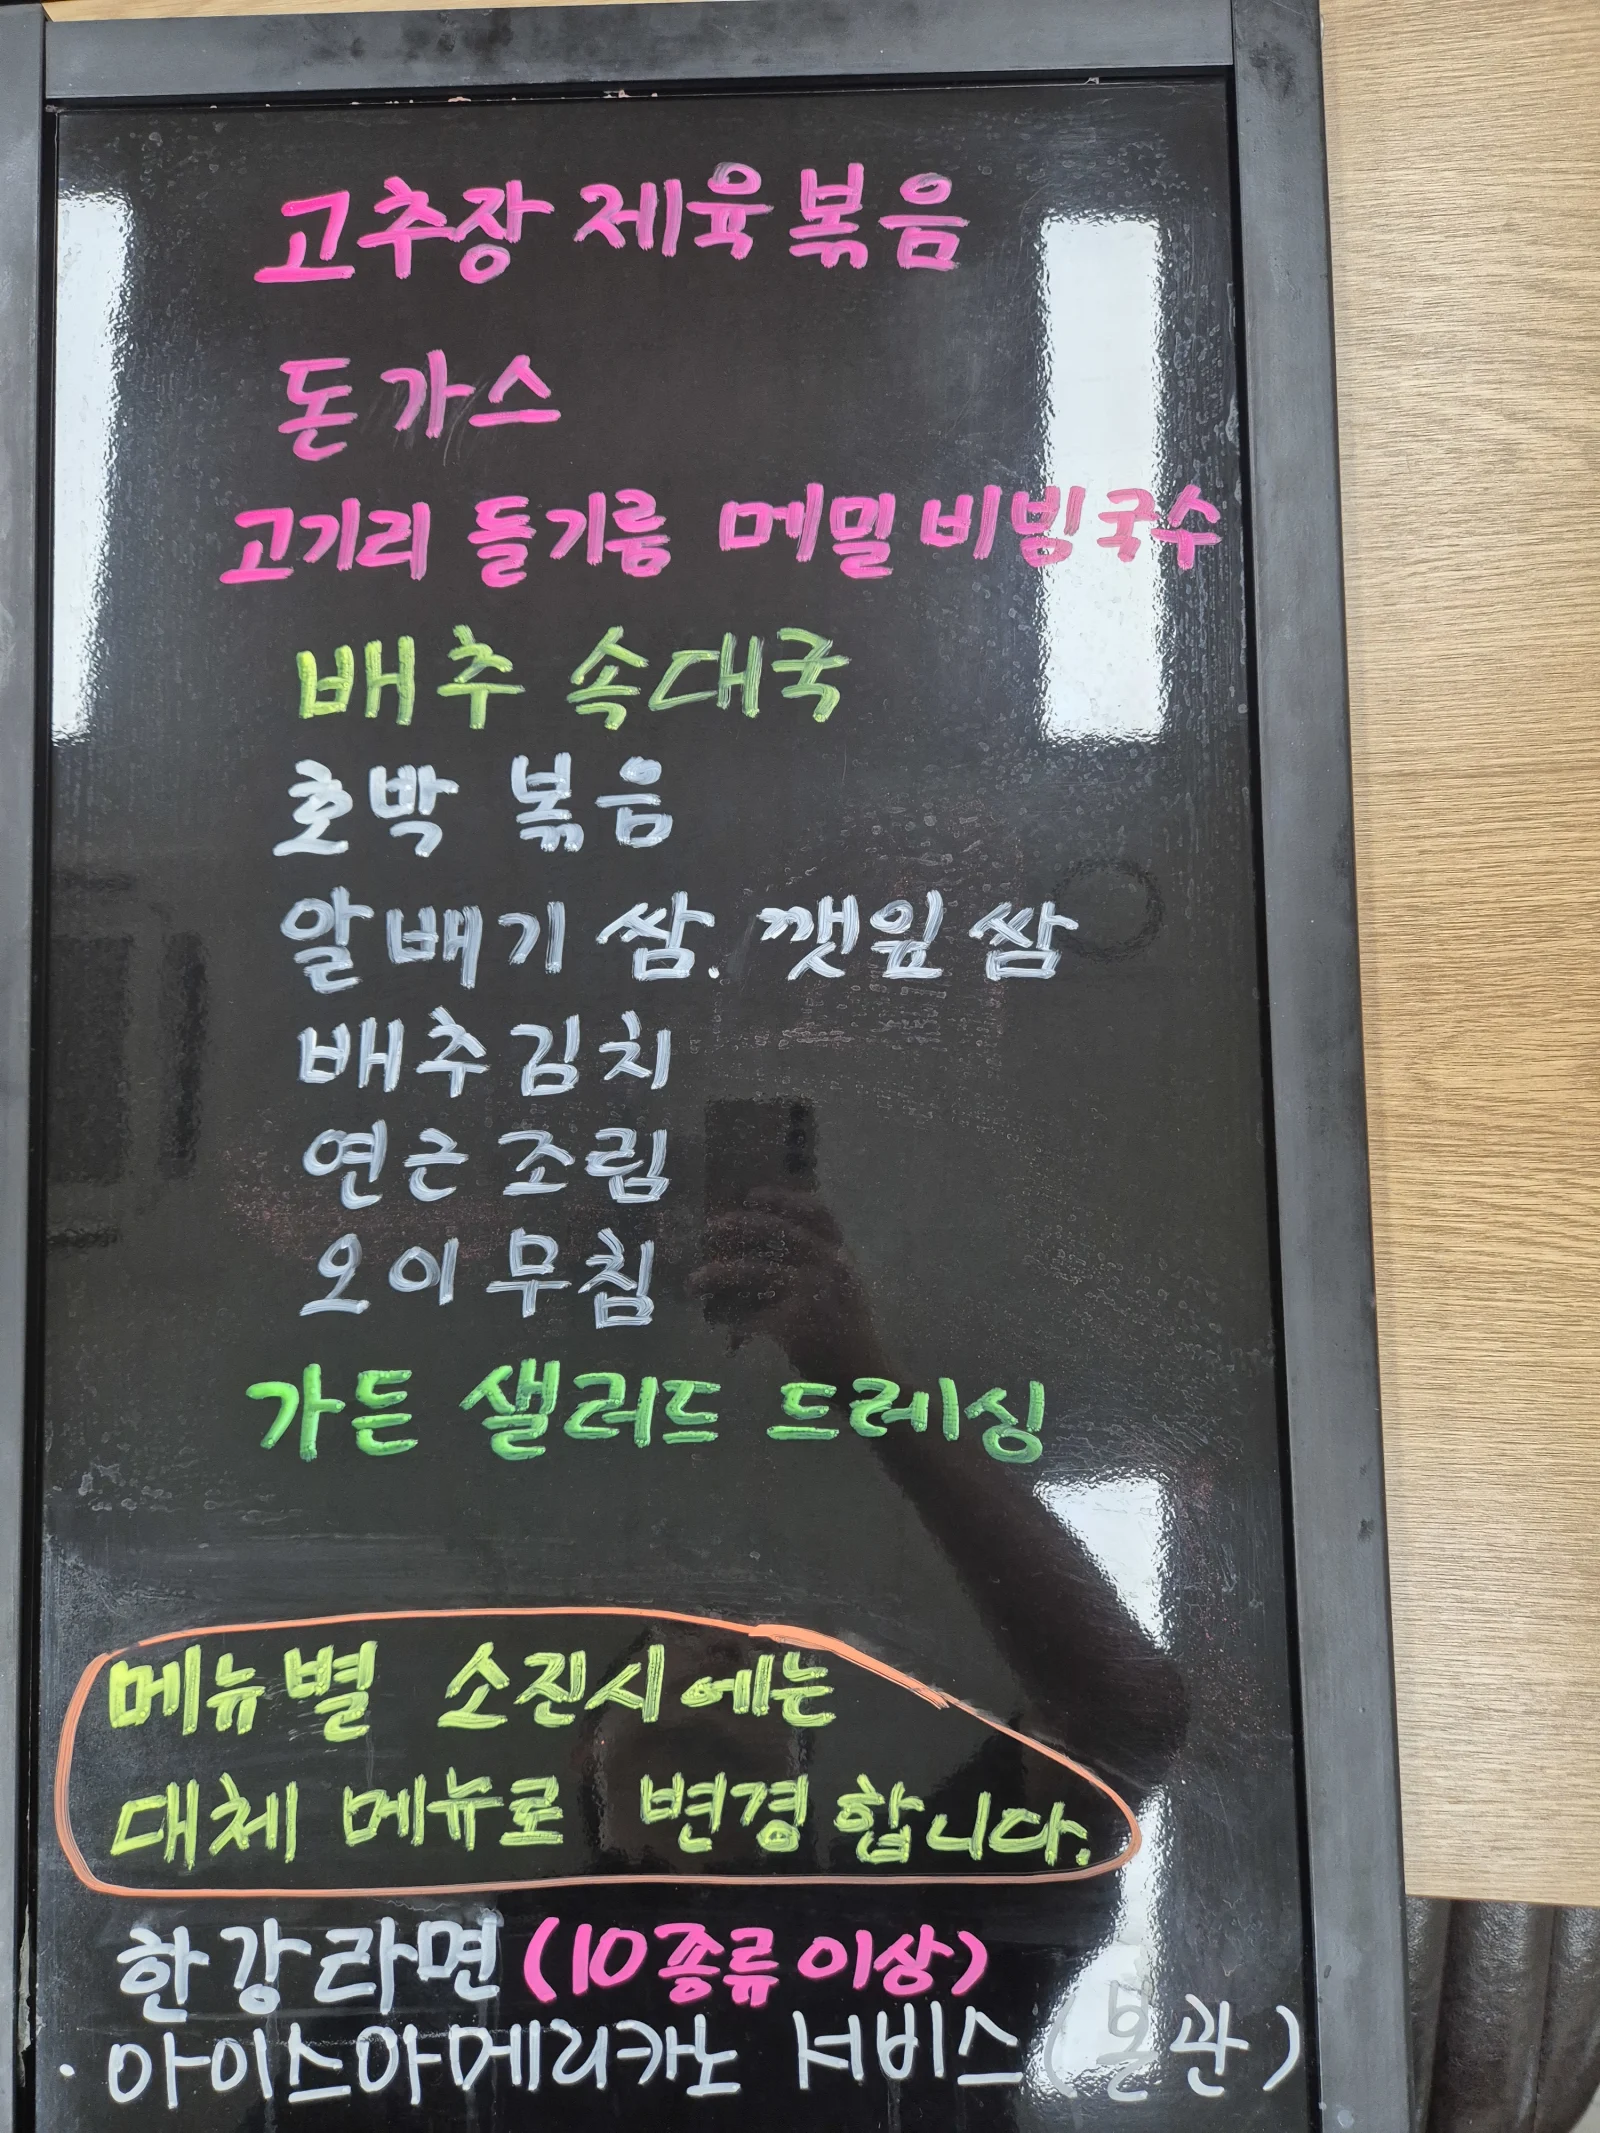 고추장 제육볶음
돈가스
고기리 들기름 메밀비빔국수
배추 속대국
호박 볶음
알배기 쌈. 깻잎쌈
배추김치
연근조림
오이무침
가든 샐러드 드레싱
메뉴별 소진시에는
대체 메뉴로 변경합니다.
한강라면(10종류이상)
·아이스아메리카노 서비스(본관)